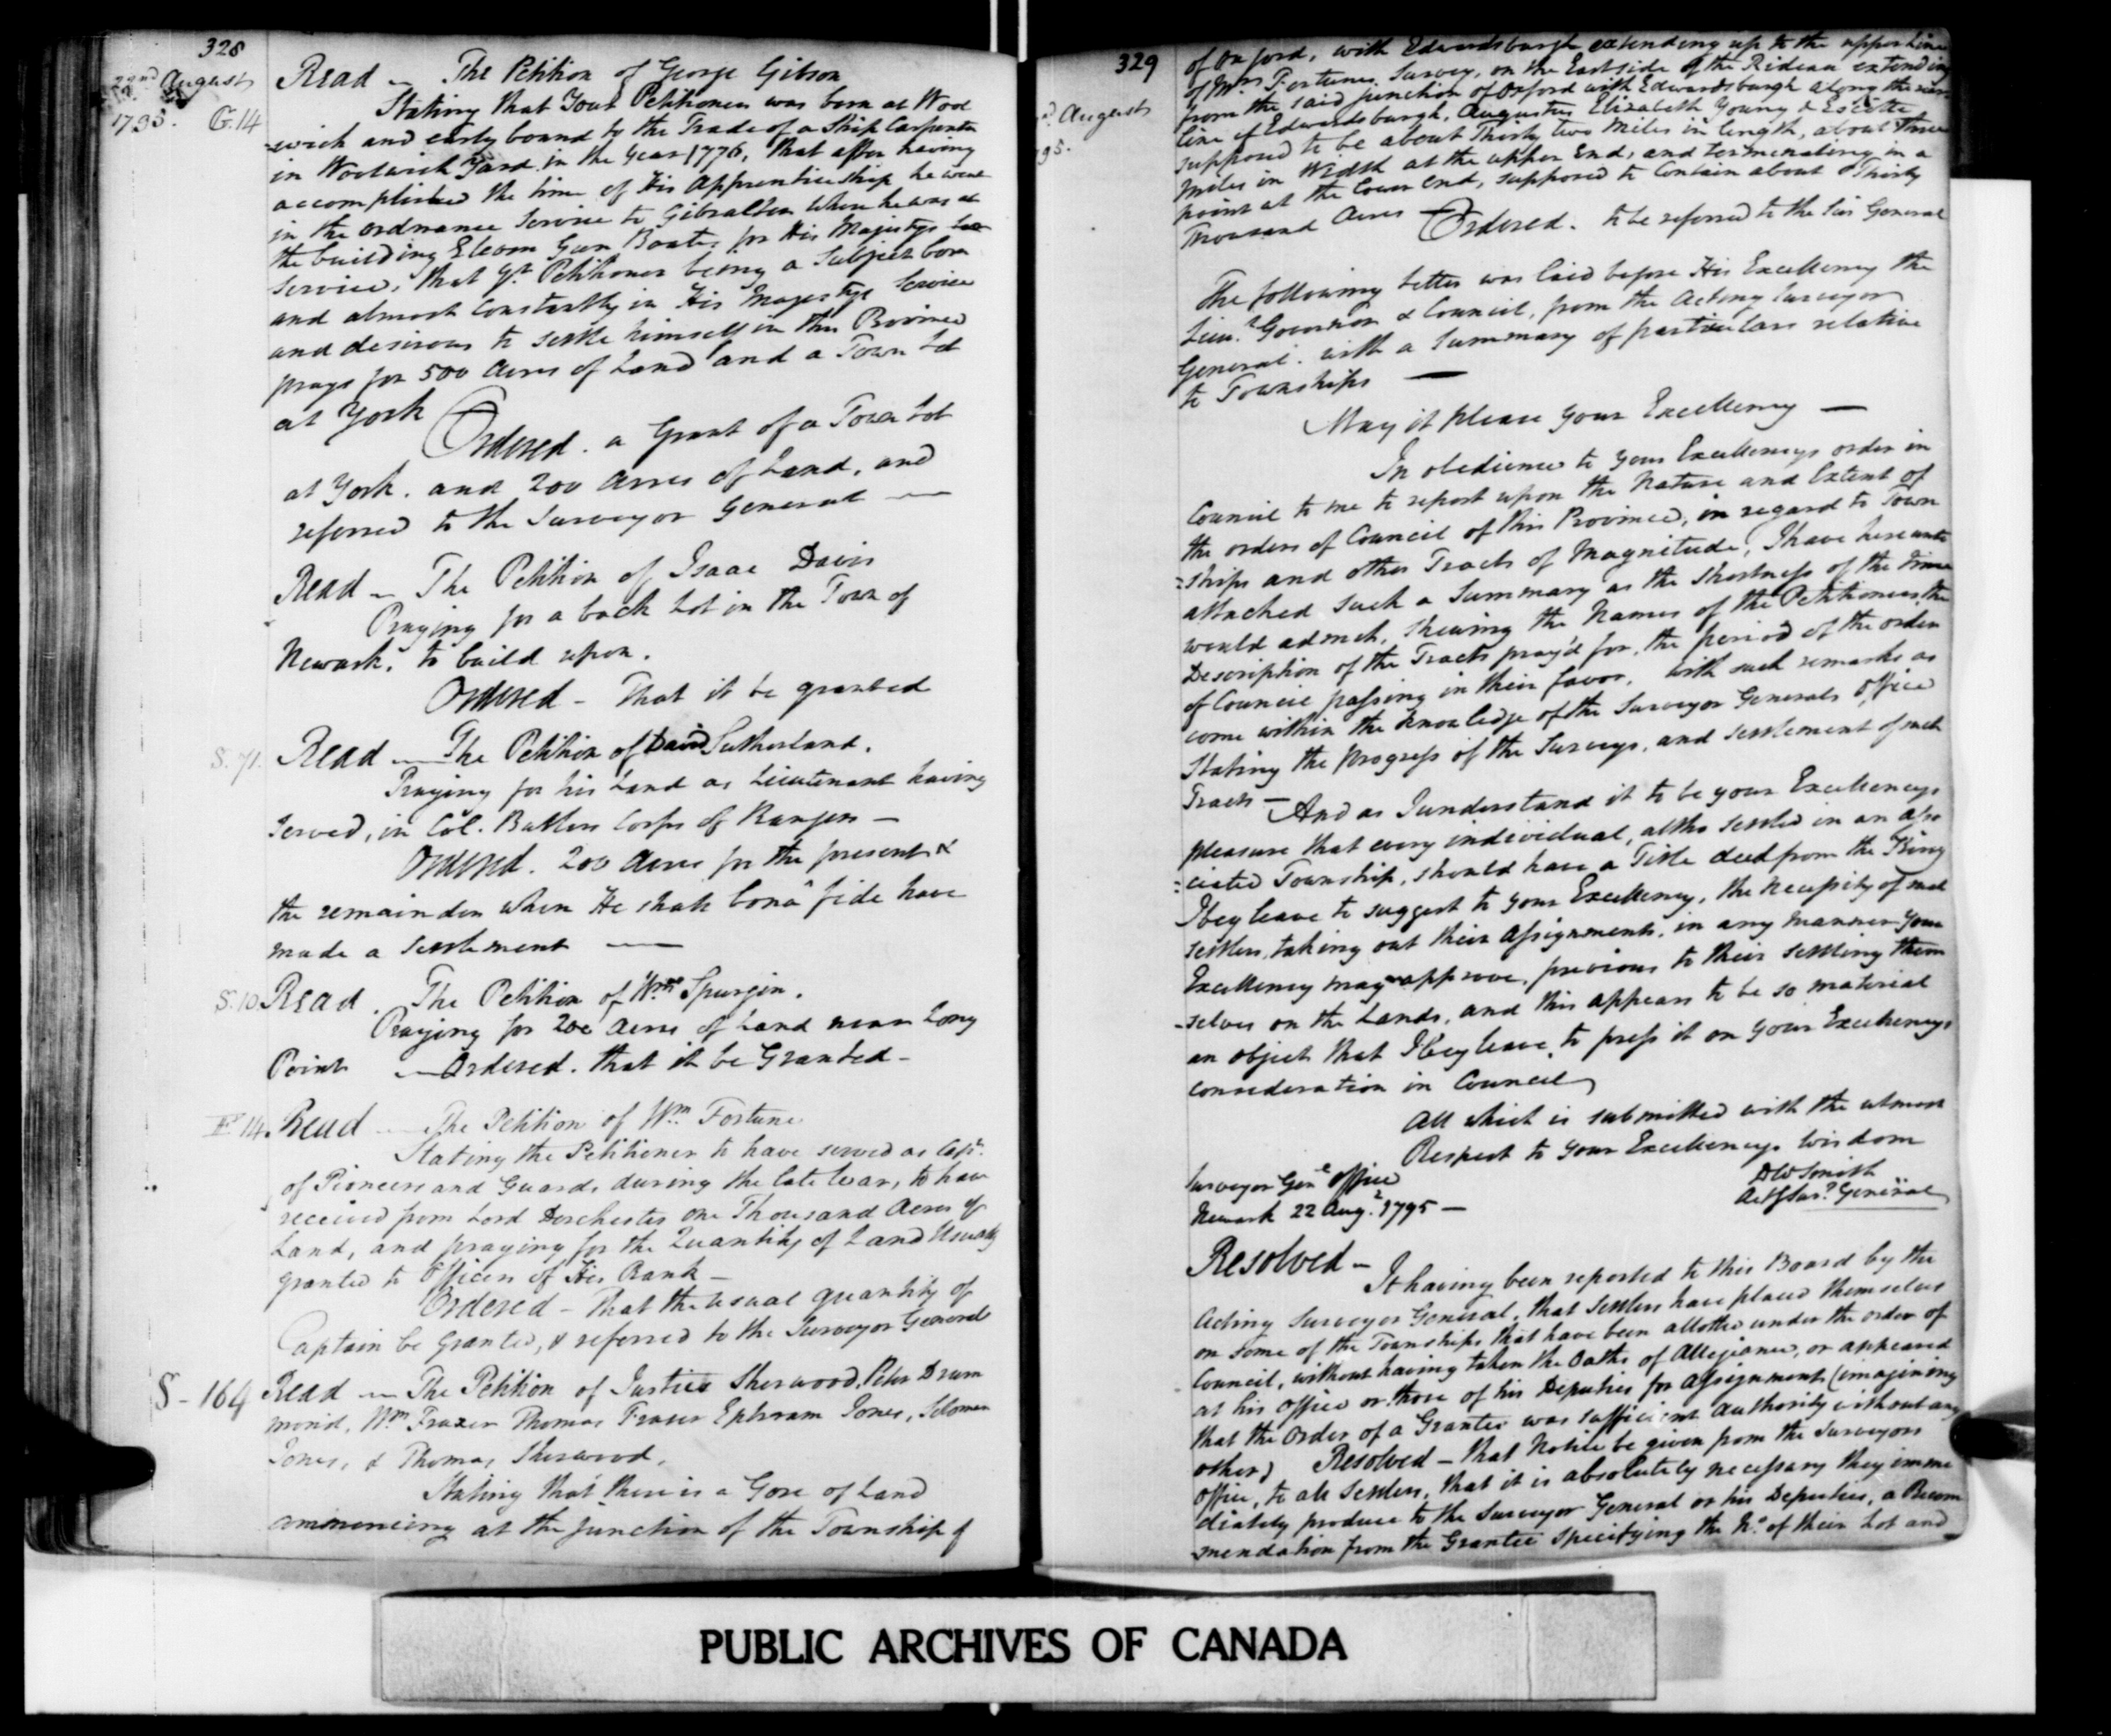 328
22nd August
1795.
G. 14
Read — The Petition of George Gibson
Stating that Your Petitioner was born at Wool
=wich and early bound to the Trade of a Ship Carpenter
in Woolwich Yard in the Year 1776, that after having
accomplished the time of His Apprenticeship he went
in the ordnance Service to Gibralter where he was at
the building Eleven Gun Boats, for His Majestys
Service, that Yr. Petitioner being a Subject born
and almost Constantly in His Majestys Service
and desirous to settle himself in this Province
prays for 500 Acres of Land and a Town Lot
at York
Ordered. a Grant of a Town Lot
at York. and 200 Acres of Land, and
referred to the Surveyor General —
Read — The Petition of Isaac Davis
Praying for a back Lot in the Town of
Newark, to build upon.
Ordered — That it be granted
S. 71.
Read — The Petition of David Sutherland.
Praying for his Land as Lieutenant having
served, in Col. Butlers Corps of Rangers —
Ordered. 200 Acres for the present &
the remainder when He shall bonâ fide have
made a settlement —
S. 10.
Read. The Petition of Wm. Spurgin.
Praying for 200 Acres of Land near Long
Point — Ordered. that it be Granted —
F 14.
Read — The Petition of Wm. Fortune
Stating the Petitioner to have served as Capt.
of Pioneers and Guards during the late War, to have
received from Lord Dorchester one Thousand Acres of
Land, and praying for the Quantity of Land Usually
granted to Officers of His Rank —
Ordered — That the usual quantity of
Captain be Granted, & referred to the Surveyor General
S - 164
Read — The Petition of Justus Sherwood, Peter Drum
mond, Wm. Frazer Thomas Fraser Ephraim Jones, Solomon
Jones, & Thomas Sherwood.
Stating that there is a Gore of Land
commencing at the junction of the Township of
329
August
95.
of Oxford, with Edwardsburgh extending up to the upper line
of Mr. Fortunes Survey, on the East side of the Rideau extending
from the said junction of Oxford with Edwardsburgh along the rear
line of Edwardsburgh, Augusta, Elizabeth Young & Escotte
supposed to be about Thirty two Miles in length, about three
Miles in Width at the upper End, and terminating in a
point at the Lower End, supposed to Contain about Thirty
Thousand Acres — Ordered. to be referred to the Sur General
The following Letter was laid before His Excellency the
Lieut. Governor & Council, from the Acting Surveyor
General. with a Summary of particulars relative
to Townships —
May it please Your Excellency —
In obedience to Your Excellencys order in
Council to me to report upon the Nature and Extent of
the orders of Council of this Province, in regard to Town
=ships and other Tracts of Magnitude, I have hereunto
attached such a Summary as the Shortness of the time
would admit, shewing the Names of the Petitioners, the
Description of the Tracts pray'd for, the period of the orders
of Council passing in their favor, with such remarks as
come within the knowledge of the Surveyor Generals Office
Stating the progress of the Surveys, and settlement of such
Tracts — And as I understand it to be your Excellencys
pleasure that every individual, altho settled in an asso
=ciated Township, should have a Title deed from the King
I beg leave to suggest to Your Excellency, the Necessity of such
settlers, taking out their Assignments, in any manner Your
Excellency may approve, previous to their settling them
-selves on the Lands, and this appears to be so material
an object that I beg leave, to press it on Your Excellencys
consideration in Council
All which is submitted with the utmost
Respect to Your Excellencys Wisdom
DW Smith
Actg Surr. General
Surveyor Genl Office
Newark 22 Aug. 1795 —
Resolved —
It having been reported to this Board by the
Acting Surveyor General, that Settlers have placed themselves
on some of the Townships that have been allotted under the order of
Council, without having taken the Oaths of Allegiance, or appeared
at his Office or those of his Deputies for assignment (imagining
that the order of a Grantee was sufficient Authority without any
other) Resolved — That Notice be given from the Surveyors
Office, to all Settlers, that it is absolutely necessary they imme
diately produce to the Surveyor General or his Deputies, a Recom
mendation from the Grantee specifying the No. of their Lot and
PUBLIC ARCHIVES OF CANADA